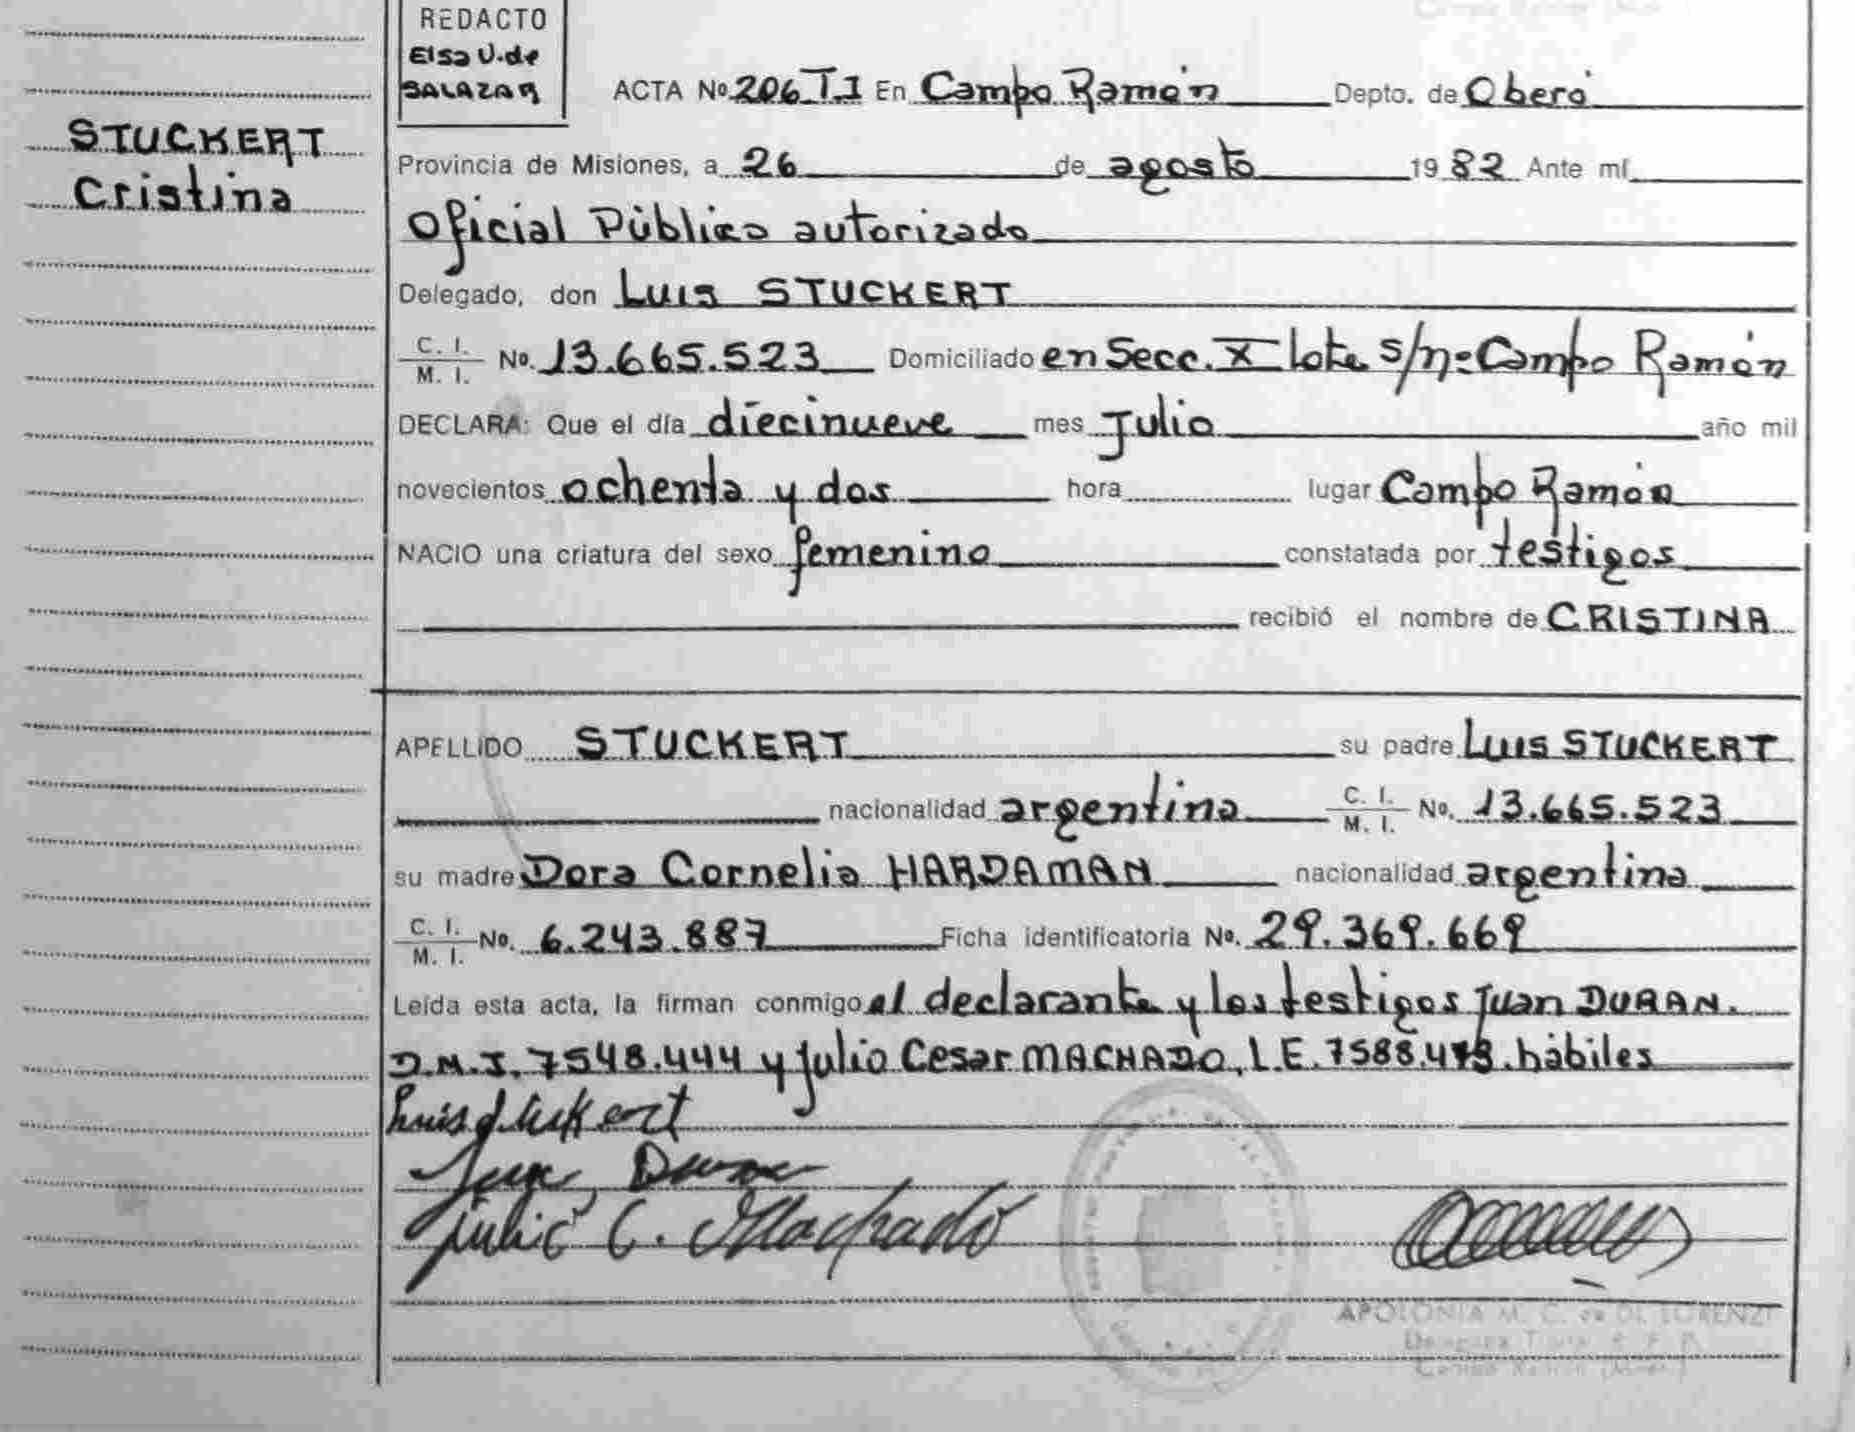 REDACTO
Elsa V. de
SALAZAR
STUCKERT
Cristina
ACTA Nº 206 T.I En Campo Ramón Depto. de Oberá
Provincia de Misiones, a 26 de agosto 1982 Ante mí
Oficial Público autorizado
Delegado, don Luis STUCKERT
C. I. / M. I. Nº. 13.665.523 Domiciliado en Secc. X lote s/nº Campo Ramón
DECLARA: Que el día diecinueve mes Julio año mil
novecientos ochenta y dos hora lugar Campo Ramón
NACIO una criatura del sexo femenino constatada por testigos
recibió el nombre de CRISTINA
APELLIDO STUCKERT su padre Luis STUCKERT
nacionalidad argentina C. I. / M. I. Nº. 13.665.523
su madre Dora Cornelia HARDAMAN nacionalidad argentina
C. I. / M. I. Nº. 6.243.887 Ficha identificatoria Nº. 29.369.669
Leída esta acta, la firman conmigo el declarante y los testigos Juan DURAN.
D.M.I. 7548.444 y Julio Cesar MACHADO, L.E. 7588.473. hábiles
Luis Stuckert
Juan Duran
Julio C. Machado
APOLONIA M. C. de DI LORENZI